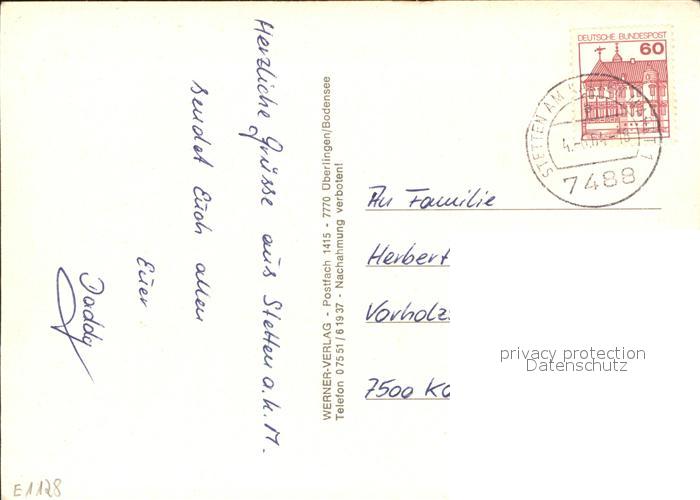 Herzliche Grüsse aus Stetten a.k.M.
sendet Euch allen
Euer
Daddy
WERNER-VERLAG - Postfach 1415 - 7770 Überlingen/Bodensee
Telefon 07551/61937 - Nachahmung verboten!
DEUTSCHE BUNDESPOST
60
STETTEN AM
7488
An Familie
Herbert
Vorholz
7500 Ka
privacy protection
Datenschutz
E1128